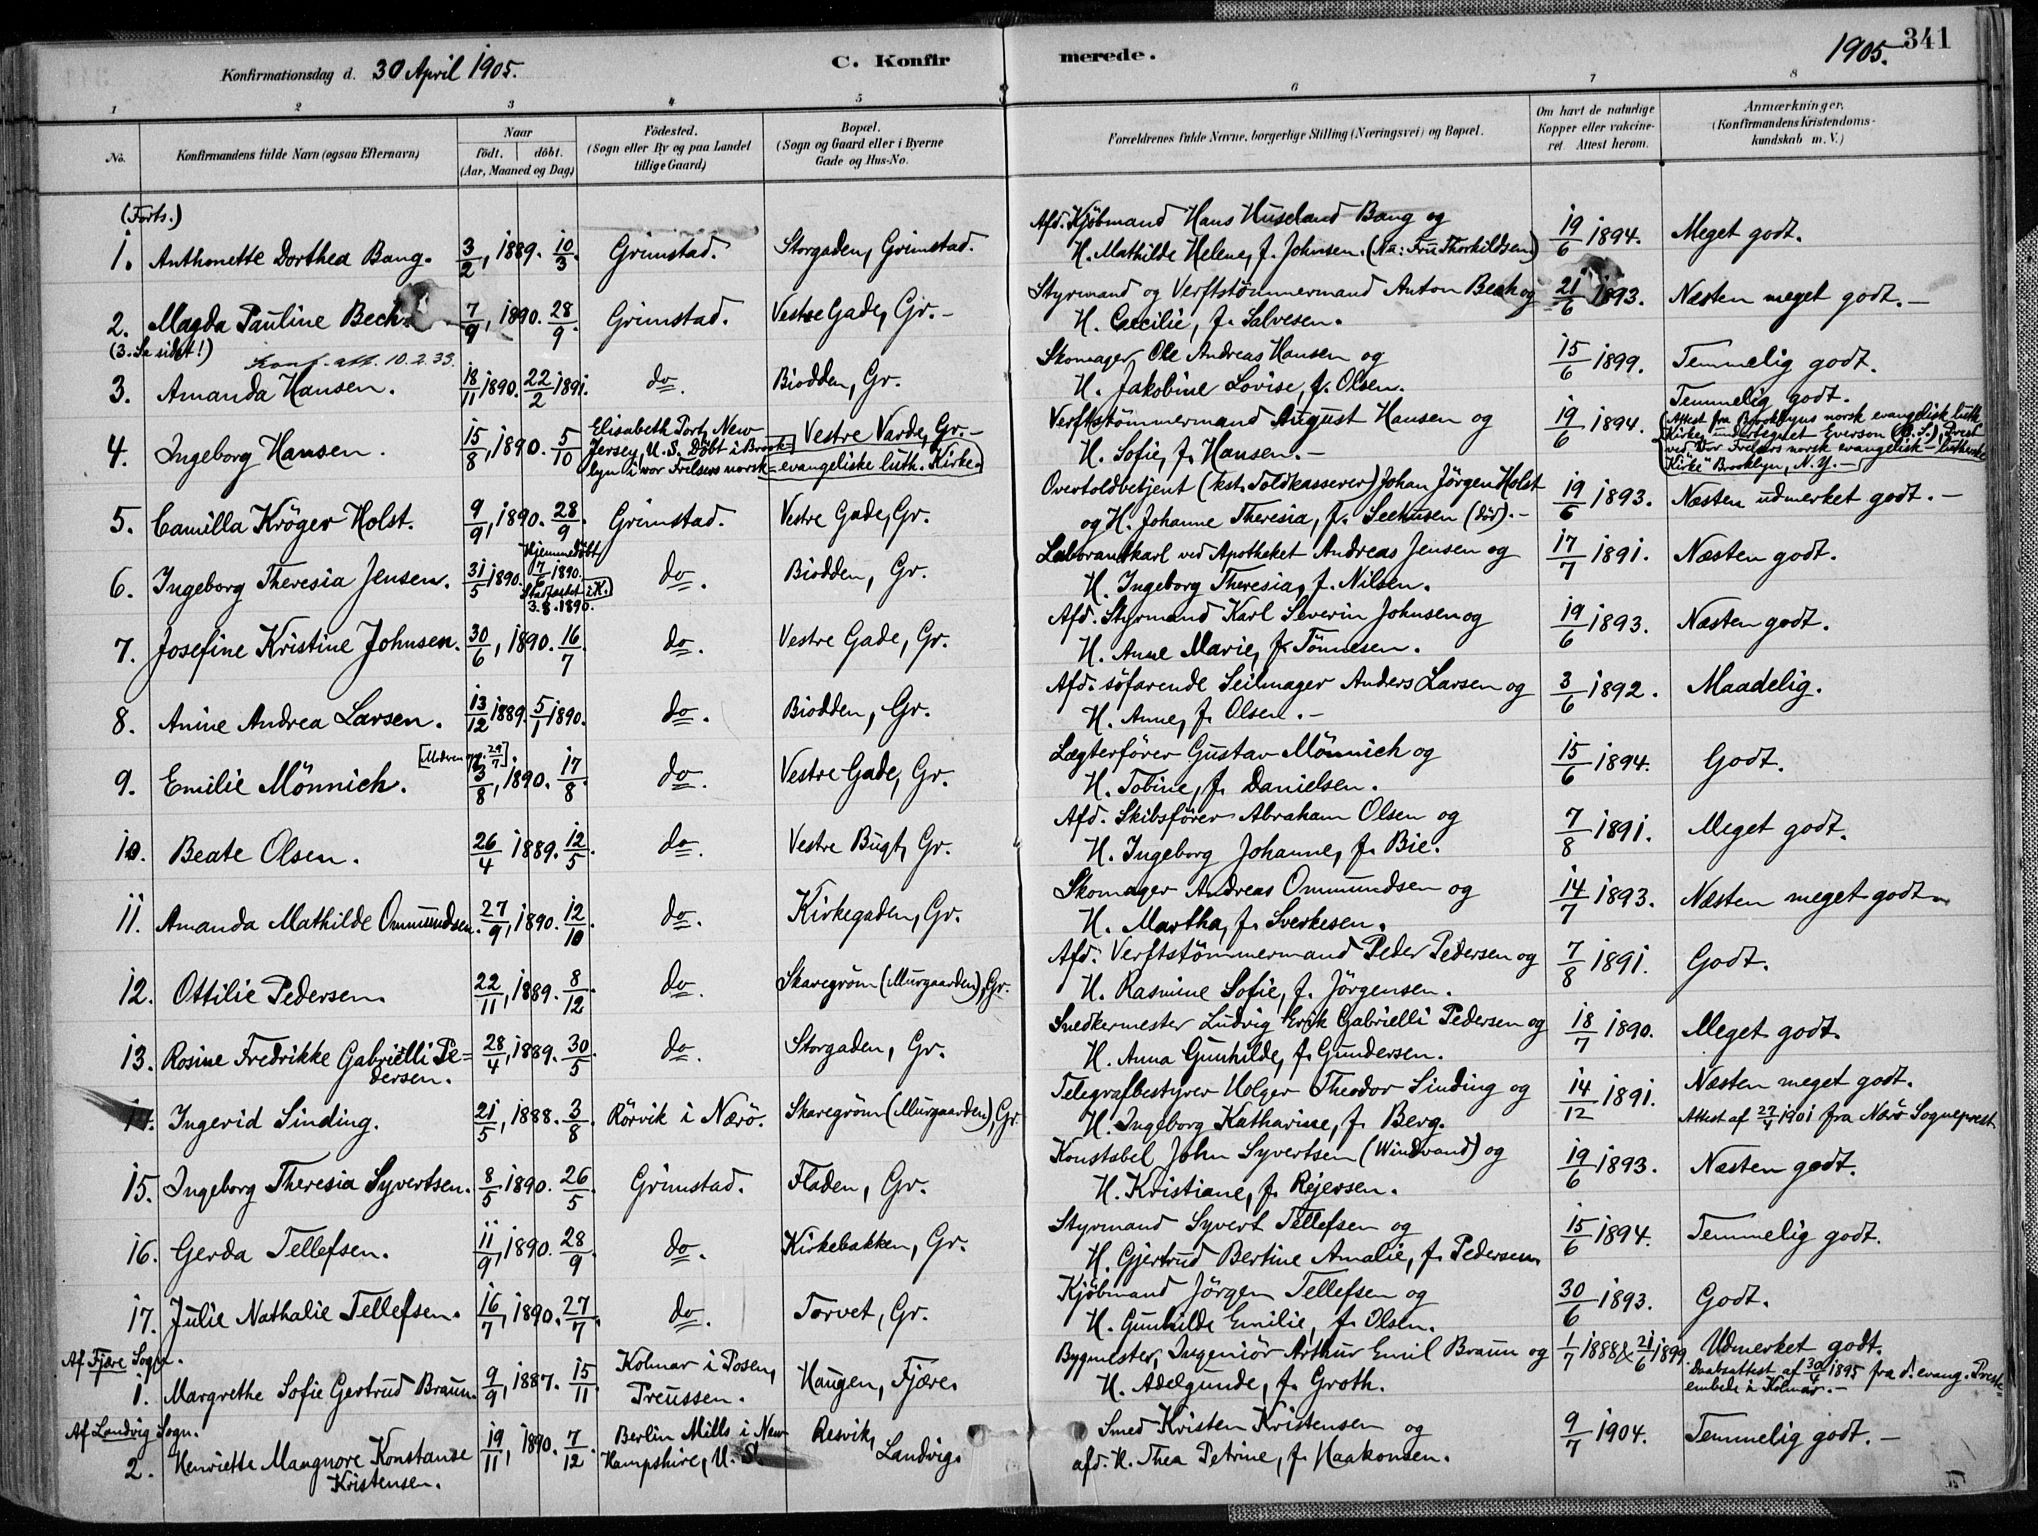 Konfirmationsdag d. 30 April 1905.
C. Konfirmerede.
1905. 341
1 2 3 4 5 6 7 8
No.
Konfirmandens fulde Navn (ogsaa Efternavn)
Naar
födt. döbt.
(Aar, Maaned og Dag)
Födested.
(Sogn eller By og paa Landet
tillige Gaard)
Bopæl.
(Sogn og Gaard eller i Byerne
Gade og Hus-No.
Forældrenes fulde Navne, borgerlige Stilling (Næringsvei) og Bopæl.
Om havt de naturlige
Kopper eller vakcine-
ret. Attest herom.
Anmærkninger.
(Konfirmandens Kristendoms-
kundskab m. V.)
(Forts.)
1. Anthonette Dorthea Bang. 3/2, 1889. 10/3. Grimstad. Storgaden, Grimstad. Afd. Kjöbmand Hans Huseland Bang og
H. Mathilde Helene, f. Johnsen. (Nu: Fru Thorkildsen) 19/6 1894. Meget godt.
2. Magda Pauline Bech. 7/9, 1890. 28/9. Grimstad. Vestre Gade, Gr.- Styrmand og Verftstömmermand Anton Bech og
H. Cæcilie, f. Salvesen. 21/6 1893. Næsten meget godt.-
(3. Se sidst!) Konf. att. 10.2.33.
3. Amanda Hansen. 18/11 1890. 22/2 1891. do. Biodden, Gr. Skomager Ole Andreas Hansen og
H. Jakobine Lovise, f. Olsen. 15/6 1899. Temmelig godt.
4. Ingeborg Hansen. 15/8, 1890. 5/10 Elisabeth Port, New
Jersey, U. S. Döbt i Brook-
lyn i vor Frelsers norsk-evangeliske luth. Kirke. Vestre Varde, Gr.- Verftstömmermand August Hansen og
H. Sofie, f. Hansen.- 19/6 1894. Temmelig godt.
(Attest fra Brooklyns norsk evangelisk luth.
Kirke, undertegnet Everson, Prest
ved "Vor Frelsers norsk evangelisk-lutherske
Kirke" Brooklyn, N.Y.-
5. Camilla Kröger Holst. 9/9, 1890. 28/9. Grimstad. Vestre Gade, Gr. Overtoldbetjent (kst. Toldkasserer) Johan Jörgen Holst
og H. Johanne Theresia, f. Seehusen (död).- 19/6 1893. Næsten udmerket godt.-
6. Ingeborg Theresia Jensen. 31/5 1890. Hjemmedöbt
17/6 1890.
Stadfæstet i K.
3.8.1890. do. Biodden, Gr. Laborantkarl ved Apotheket Andreas Jensen og
H. Ingeborg Theresia, f. Nilsen. 17/7 1891. Næsten godt.
7. Josefine Kristine Johnsen. 30/6, 1890. 16/7 do. Vestre Gade, Gr. Afd. Styrmand Karl Severin Johnsen og
H. Anne Marie, f. Tönnesen. 19/6 1893. Næsten godt.
8. Anine Andrea Larsen. 13/12 1889. 5/1 1890. do. Biodden, Gr. Afd. söfarende Seilmager Anders Larsen og
H. Anne, f. Olsen.- 3/6 1892. Maadelig.
9. Emilie Mönnich. 3/8, 1890. 17/8. do. Vestre Gade, Gr. Lægterförer Gustav Mönnich og
H. Tobine, f. Danielsen. 15/6 1894. Godt.
10. Beate Olsen. 26/4 1889. 12/5. do. Vestre Bugt, Gr. Afd. Skibsförer Abraham Olsen og
H. Ingeborg Johanne, f. Bie. 7/8 1891. Meget godt.
11. Amanda Mathilde Ommundsen. 27/9, 1890. 12/10 do. Kirkegaden, Gr. Skomager Andreas Ommundsen og
H. Martha, f. Sverkesen. 14/7 1893. Næsten meget godt.
12. Ottilie Pedersen. 22/11, 1889. 8/12. do. Skaregrøm (Murgaarden), Gr. Afd. Verftstömmermand Peder Pedersen og
H. Rasmine Sofie, f. Jörgensen. 7/8 1891. Godt.
13. Rosine Fredrikke Gabrielli Pe-
dersen. 28/4, 1889. 30/5. do. Storgaden, Gr. Snedkermester Ludvig Erik Gabrielli Pedersen og
H. Anna Gunhilde, f. Gundersen. 18/7 1890. Meget godt.
14. Ingerid Sinding. 21/5, 1888. 3/8. Rörvik i Nærö. Skaregrøm (Murgaarden), Gr. Telegrafbestyrer Holger Theodor Sinding og
H. Ingeborg Katharine, f. Berg. 14/12 1891. Næsten meget godt.
Attest af 27/4 1901 fra Nærö Sogneprest.
15. Ingeborg Theresia Syvertsen. 8/5, 1890. 26/5. Grimstad. Fladen, Gr. Konstabel John Syvertsen (Windvand) og
H. Kristiane, f. Rejersen. 19/6 1893. Næsten godt.
16. Gerda Tellefsen. 11/9, 1890. 28/9. do. Kirkebakken, Gr. Styrmand Syvert Tellefsen og
H. Gjertrud Bertine Amalie, f. Pedersen. 15/6 1894. Temmelig godt.
17. Julie Nathalie Tellefsen. 16/7, 1890. 27/7. do. Torvet, Gr. Kjöbmand Jörgen Tellefsen og
H. Gunhilde Emilie, f. Olsen. 30/6 1893. Godt.
Af Fjære Sogn.
1. Margrethe Sofie Gertrud Braun. 9/9, 1887. 15/11 Kolmar i Posen,
Preussen. Haugen, Fjære. Bygmester, Ingeniör Arthur Emil Braun og
H. Adelgunde, f. Groth. 1/7 1888 & 21/6 1899. Udmerket godt.
Daabsattest af 30/4 1895 fra d. evang. Preste-
embede i Kolmar.-
Af Landvig Sogn.
2. Henriette Mangnore Konstanse
Kristensen. 19/11, 1890. 7/12. Berlin Mills i New
Hampshire, U. S. Resvik,
Landvig. Smed Kristen Kristensen og
afd. H. Thea Petrine, f. Haakonsen. 9/7 1904. Temmelig godt.-